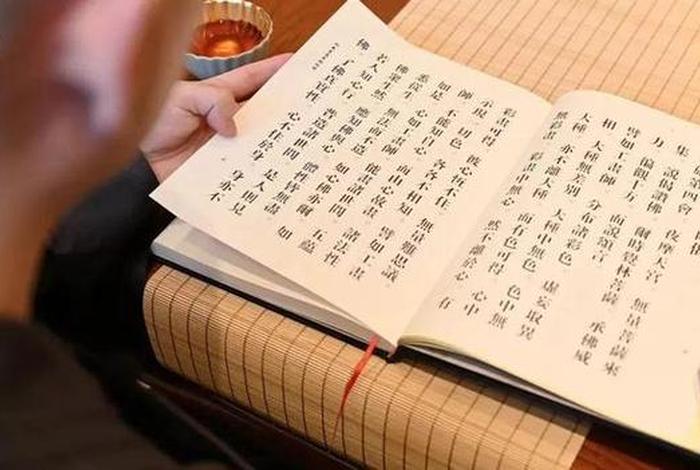 會 夜摩天宮 無量菩薩來
集 說偈讚佛 爾時覺林菩薩 承佛威
力 徧觀十方 而說頌言
譬如工畫師 分布諸彩色 虛妄取異
相 大種無差別 大種中無色 色中無
大種 亦不離大種 而有色可得 心中
無彩畫 彩畫中無心 然不離於心 有
彩畫可得 彼心恆不住 無量難思議
示現一切色 各各不相知 譬如工畫
師 不能知自心 而由心故畫 諸法性
如是 心如工畫師 能畫諸世間 五蘊
悉從生 無法而不造 如心佛亦爾 如
佛眾生然 應知佛與心 體性皆無盡
若人知心行 普造諸世間 是人則見
佛 了佛真實性 心不住於身 身亦不